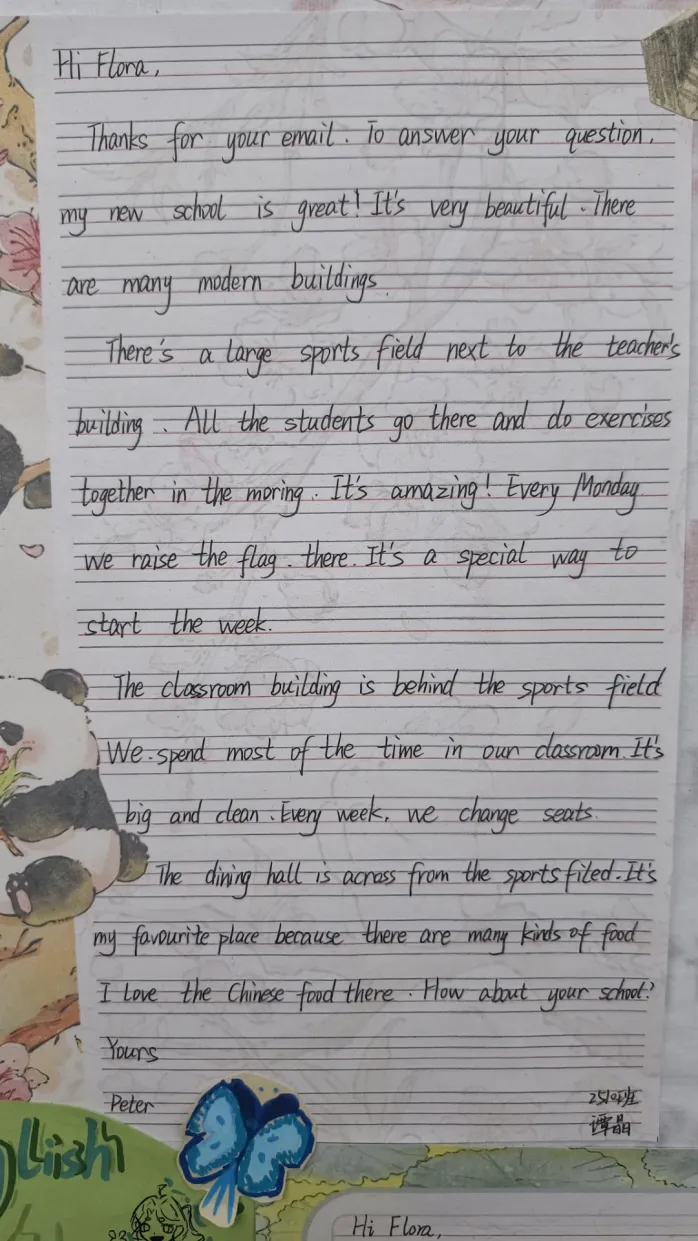 Hi Flora,
Thanks for your email. To answer your question,
my new school is great! It's very beautiful. There
are many modern buildings.
There's a large sports field next to the teacher's
building. All the students go there and do exercises
together in the moring. It's amazing! Every Monday
we raise the flag. there. It's a special way to
start the week.
The classroom building is behind the sports field
We spend most of the time in our classroom. It's
big and clean. Every week, we change seats.
The dining hall is across from the sports filed. It's
my favourite place because there are many kinds of food
I love the Chinese food there. How about your school?
Yours
Peter
谭晶
glish
Hi Flora,